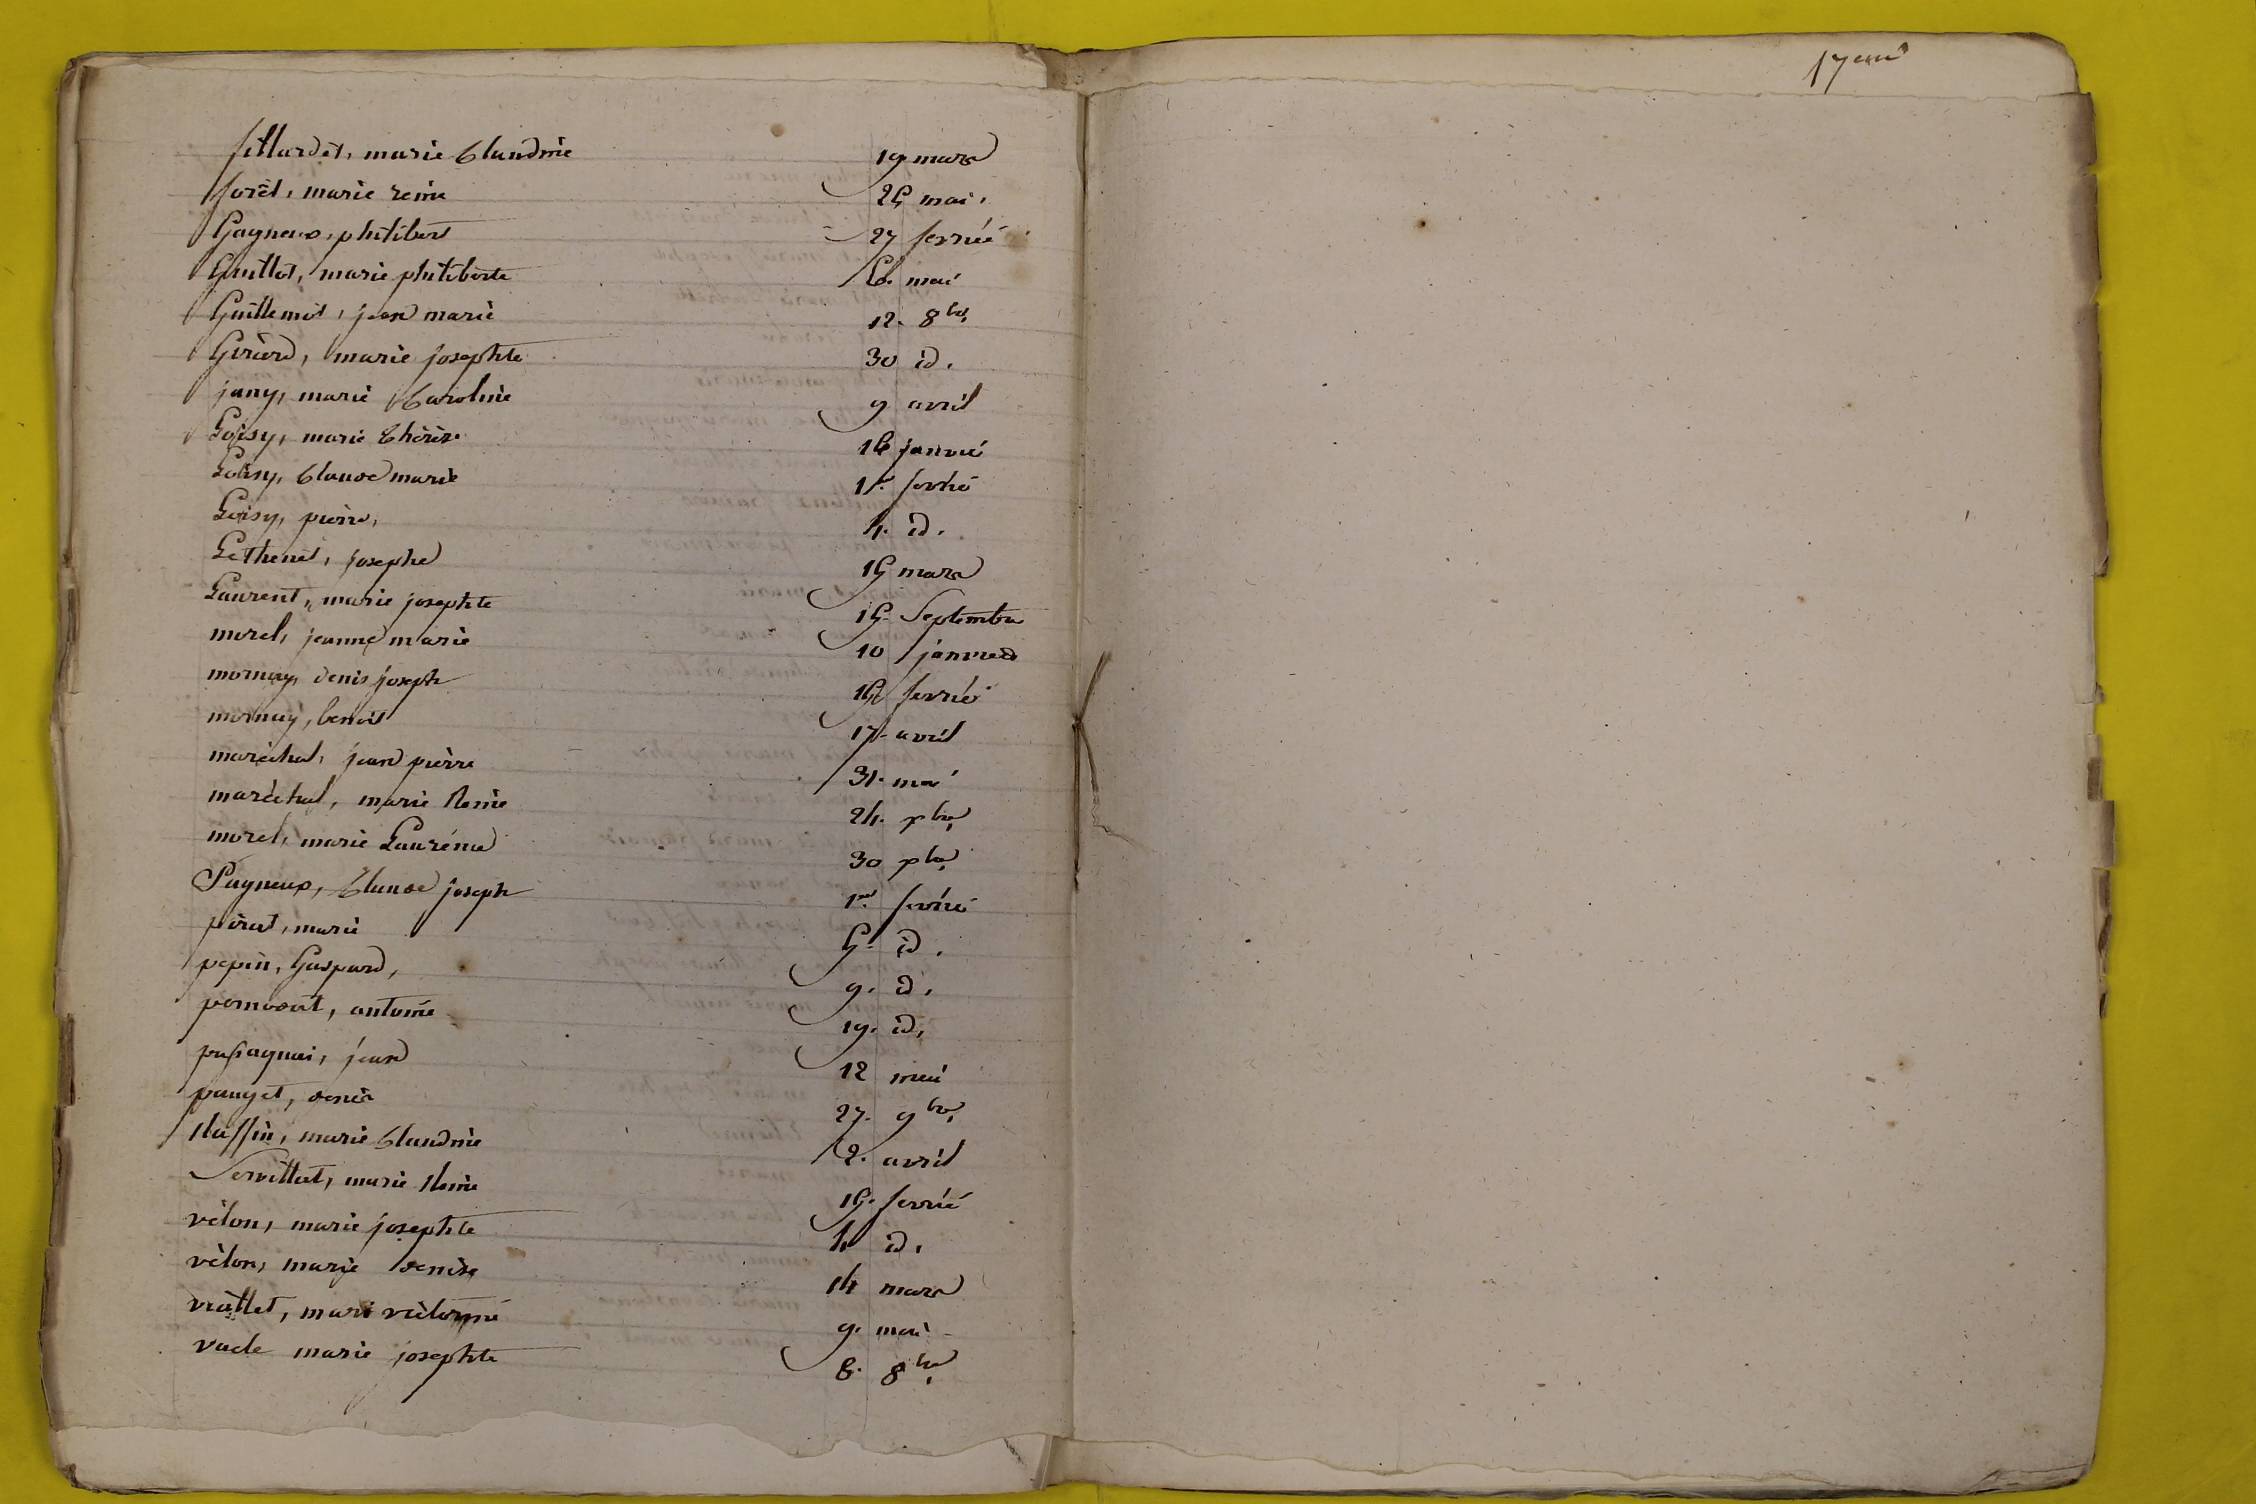 fillardet, marie Claudine 19 mars
forêt, marie reine 25 mai,
Gagneux, philibert 27 fevrié
Guillot, marie philiberte 6. mai
Guillemit, jean marie 12. 8bre,
Girard, marie josephte 30 id.
jany, marie Caroline 9 avril
Loisy, marie thérèse 16 janvié
Loisy, Claude marie 1er fevrié
Loisy, pierre, 4. id.
Lethenet, josephe 15 mars
Laurent, marie josephte 15. Septembre
morel, jeanne marie 10 janvier
mornay, denis joseph 15 fevrié
mornay, benoit 17 avril
maréchal, jean pierre 31. mai
maréchal, marie Reine 24. xbre,
morel, marie Laurénce 30 xbre,
Pagneux, Claude joseph 1er fevrié
pirat, marie 5. id.
pepin, Gaspard, 9. id.
antoine 19. id,
passaquai, jean 12 mai
pauget, denis 27. 9bre,
Ruffin, marie Claudine 2. avril
Servillat, marie Reine 15. fevrié
vélon, marie josephte 4 id.
vélon, marie denise 14 mars
viallet, mari victorine 9. mai
vacle marie josephte 8. 8bre,
17eme